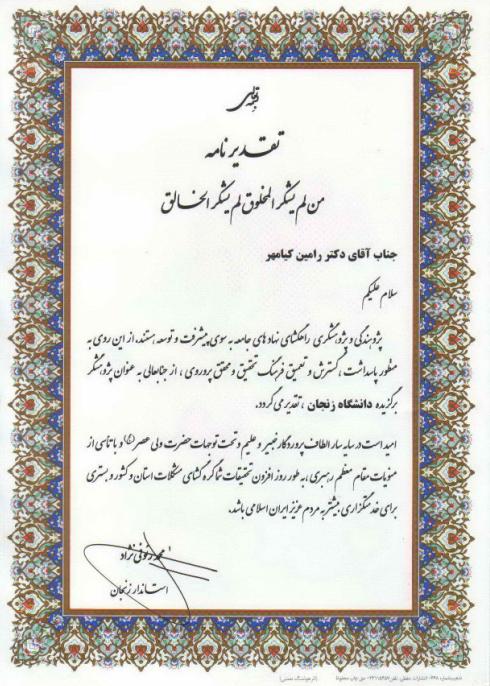 تقدیر نامه
من لم یشکر المخلوق لم یشکر الخالق
جناب آقای دکتر رامین کیامهر
سلام علیکم
پژوهندگی و پژوهشگری راهگشای نهاد های جامعه به سوی پیشرفت و توسعه هستند. از این روی به
منظور پاسداشت، گسترش و تعمیق فرهنگ تحقیق و محقق پروری، از جنابعالی به عنوان پژوهشگر
برگزیده دانشگاه زنجان، تقدیر می گردد.
امید است در سایه سار الطاف پروردگار خبیر و علیم و تحت توجهات حضرت ولی عصر (عج) و با تاسی از
منویات مقام معظم رهبری، به طور روز افزون تحقیقات شما گره گشای مشکلات استان و کشور و بستری
برای خدمتگزاری بیشتر به مردم عزیز ایران اسلامی باشد.
رئوفی نژاد
استاندار زنجان